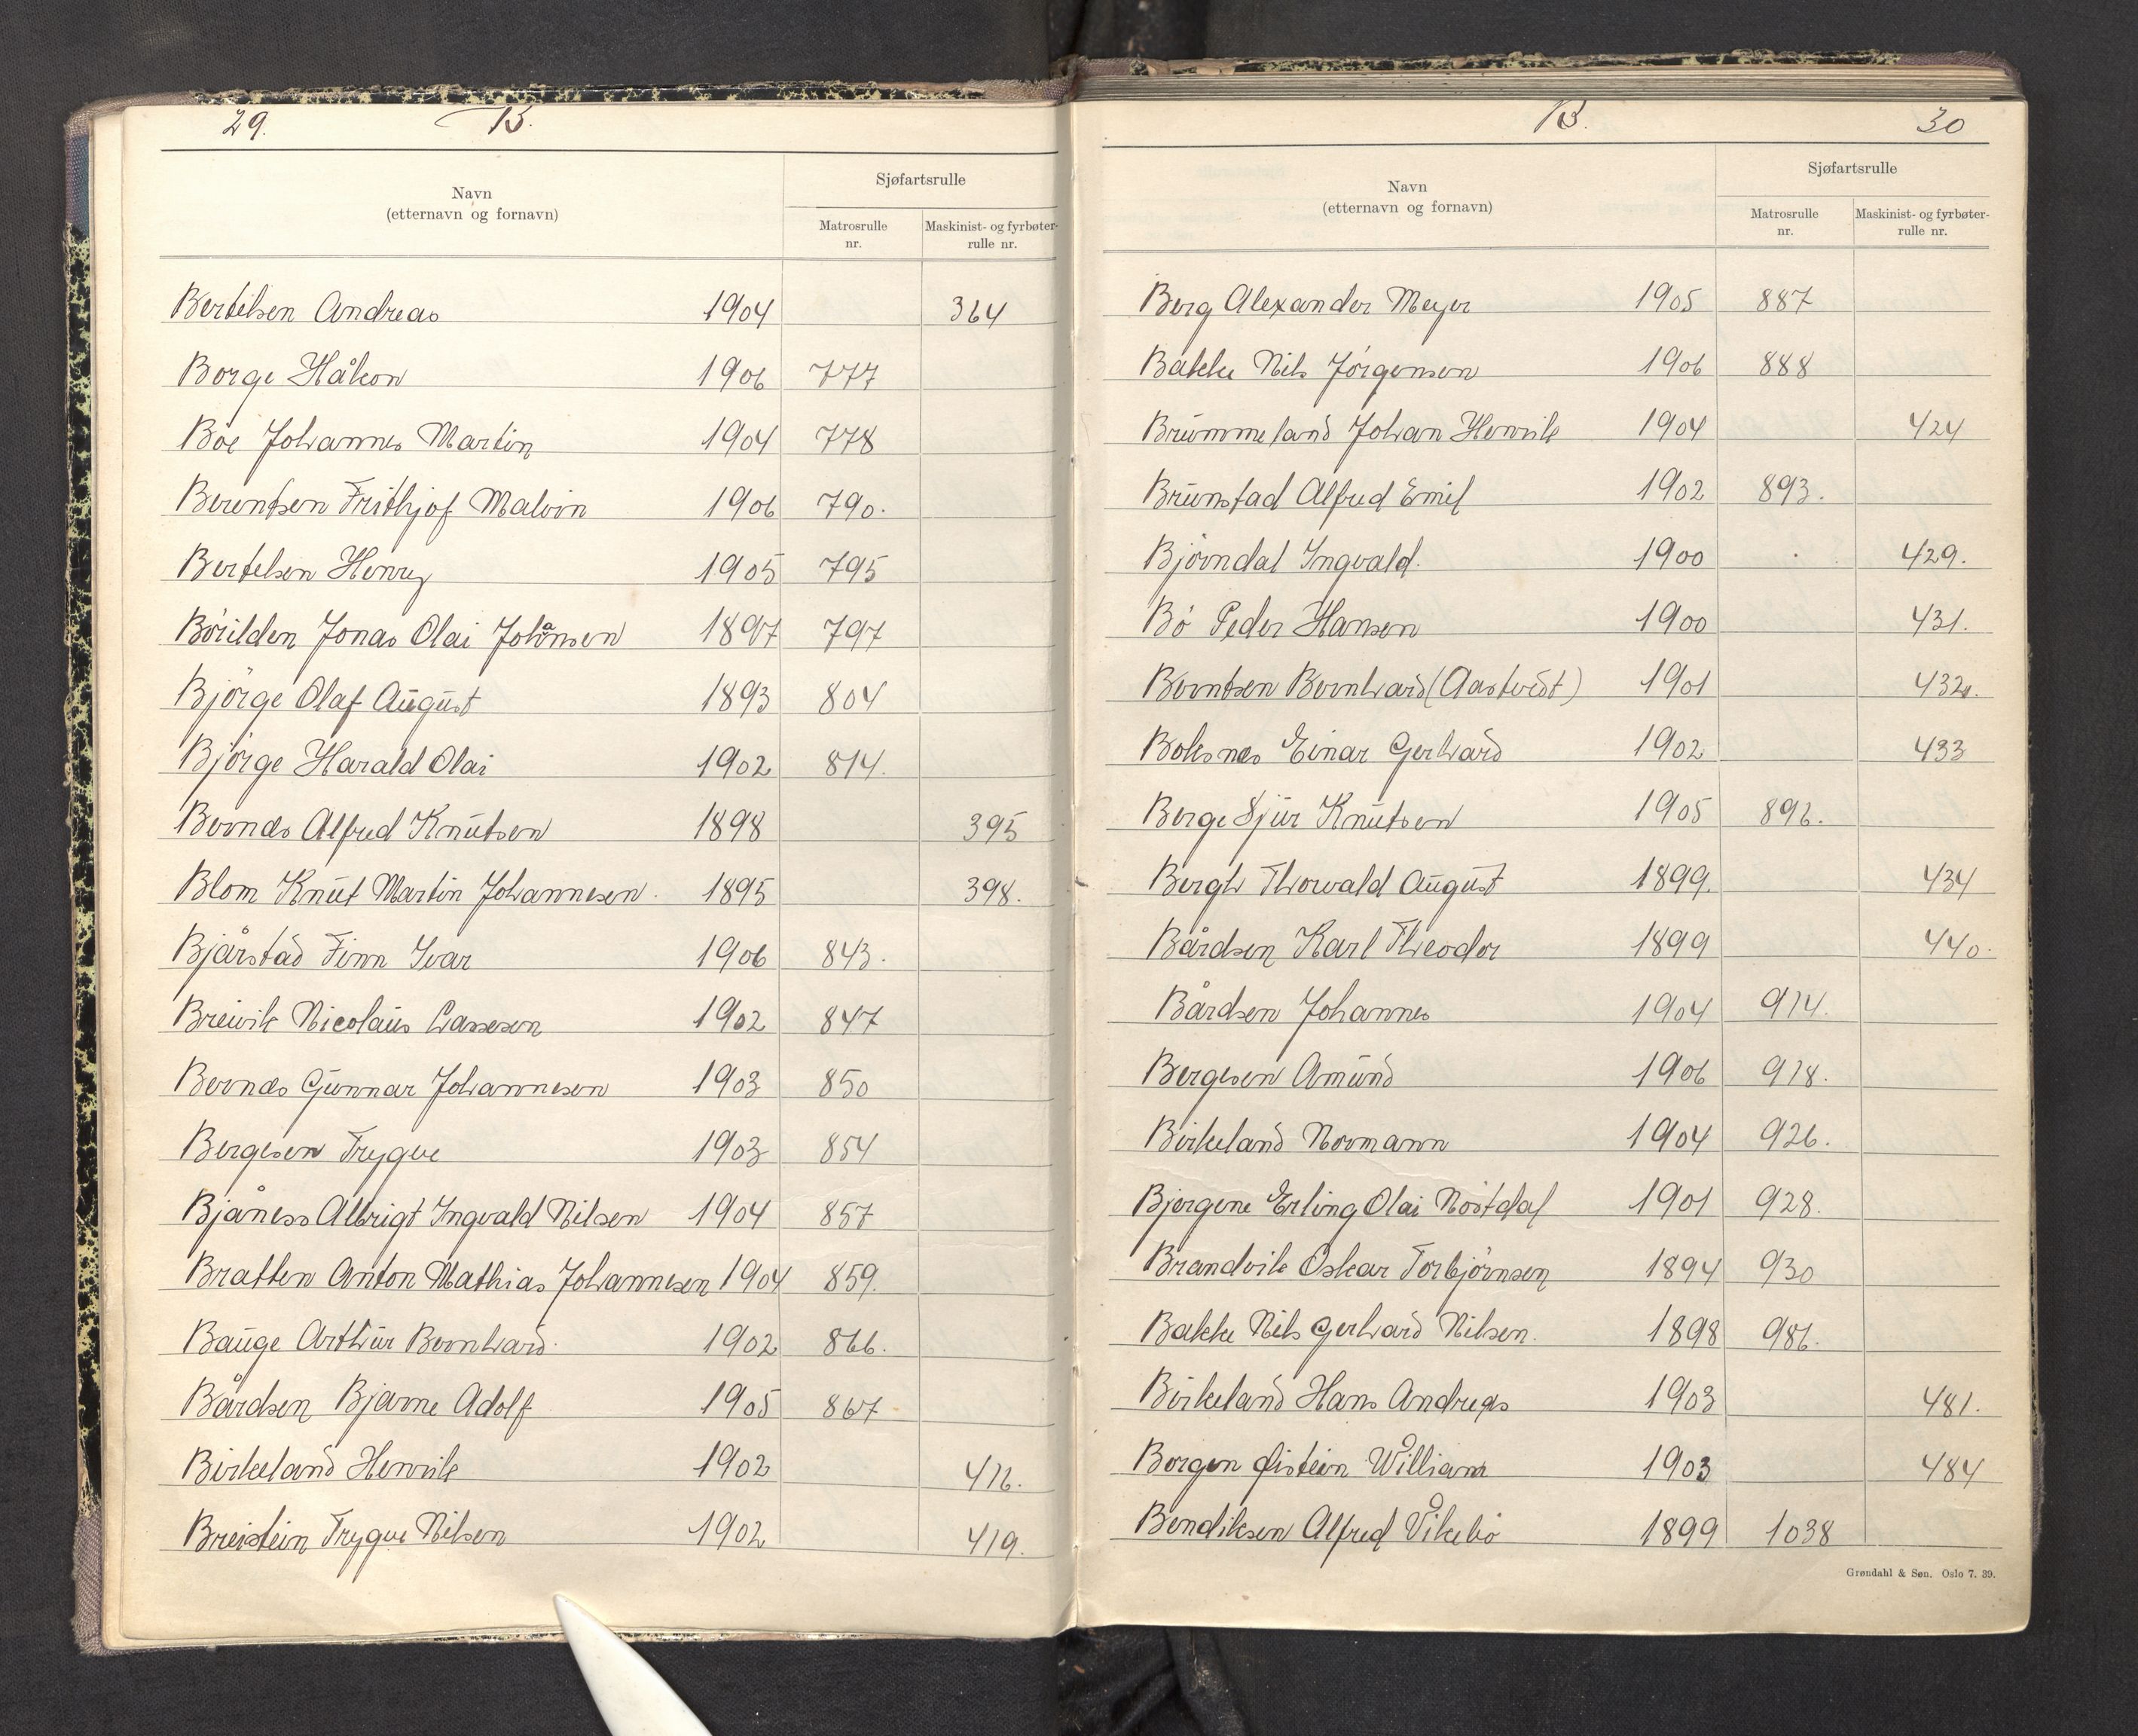 29. B.
Navn
(etternavn og fornavn)
Sjøfartsrulle
Matrosrulle nr.
Maskinist- og fyrbøter-rulle nr.
Bertelsen Andreas 1904 364
Borge Håkon 1906 777
Böe Johannes Martin 1904 778
Berentsen Frithjof Malvin 1906 790.
Bertelsen Henry 1905 795
Börilden Jonas Olai Johånsen 1897 797
Björge Olaf August 1893 804
Björge Harald Olai 1902 814.
Bernes Alfred Knutsen 1898 395
Blom Knut Martin Johannesen. 1895 398.
Bjårstad Finn Ivar 1906 843.
Breivik Nicolaus Lassesen 1902 847
Bernes Gunnar Johannesen 1903 850
Bergesen Trygve 1903 854
Bjåness Albrigt Ingvald Nilsen 1904 857
Bratten Anton Mathias Johannesen 1904 859.
Bauge Arthur Bernhard. 1902 866.
Bårdsen Bjarne Adolf 1905 867
Birkeland Henrik 1902 416.
Breistein Trygve Nilsen 1902 419.
B. 30
Navn
(etternavn og fornavn)
Sjøfartsrulle
Matrosrulle nr.
Maskinist- og fyrbøter-rulle nr.
Berg Alexander Meyer 1905 887
Bakke Nils Jörgensen 1906 888
Brummeland Johan Henrik 1904 424
Brunstad Alfred Emil 1902 893.
Björndal Ingvald. 1900 429.
Bö Peder Hansen 1900 431.
Berntsen Bernhard (Aastvedt) 1901 432.
Boksnes Einar Gerhard 1902 433
Berge Sjur Knutsen 1905 896.
Bergh Thorvald August 1899. 434
Bårdsen Karl Theodor 1899 440.
Bårdsen Johannes 1904 914.
Bergesen Amund 1906 918.
Birkeland Normann 1904 926.
Bjergene Erling Olai Nöstdal 1901 928.
Brandvik Oskar Torbjörnsen 1894 930
Bakke Nils Gerhard Nilsen. 1898 981.
Birkeland Hans Andreas 1903 481.
Borgen Øistein William 1903 484
Bendiksen Alfred Vikebö 1899 1038
Grøndahl & Søn. Oslo 7. 39.